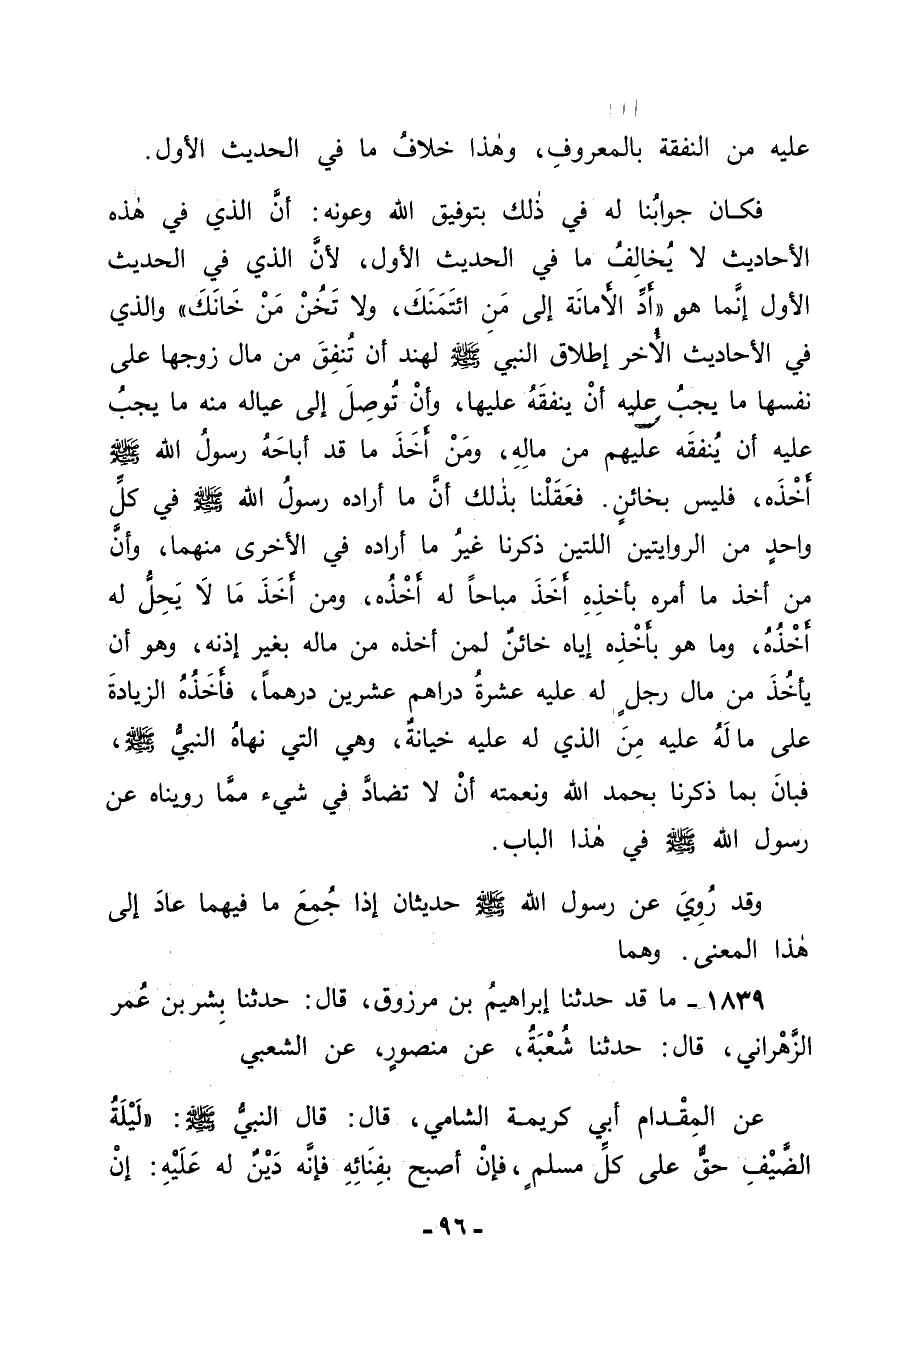 عليه من النفقة بالمعروفِ، وهٰذا خلافُ ما في الحديث الأول.
فكـان جوابُنا له في ذٰلك بتوفيق الله وعونه: أنَّ الذي في هٰذه
الأحاديث لا يُخالِفُ ما في الحديث الأول، لأنَّ الذي في الحديث
الأول إنَّما هو «أَدِّ الأَمانَة إلى مَنِ ائتَمَنَكَ، ولا تَخُنْ مَنْ خَانَكَ» والذي
في الأحاديث الأُخر إطلاق النبي ﷺ لهند أن تُنفِقَ من مال زوجها على
نفسها ما يجبُ عليه أنْ ينفقَهُ عليها، وأنْ تُوصِلَ إلى عياله منه ما يجبُ
عليه أن يُنفقَه عليهم من مالِهِ، ومَنْ أَخَذَ ما قد أباحَهُ رسولُ الله ﷺ
أَخْذَه، فليس بخائنٍ. فعَقَلْنا بذٰلك أنَّ ما أراده رسولُ الله ﷺ في كلِّ
واحدٍ من الروايتين اللتين ذكرنا غيرُ ما أراده في الأخرى منهما، وأنَّ
من أخذ ما أمره بأخذِهِ أَخَذَ مباحاً له أَخْذُه، ومن أَخَذَ مَا لَا يَحِلُّ له
أَخْذُهُ، وما هو بأَخْذِه إياه خائنٌ لمن أخذه من ماله بغير إذنه، وهو أن
يأخُذَ من مال رجلٍ له عليه عشرةُ دراهم عشرين درهماً، فأَخَذُهُ الزيادةَ
على ما لَهُ عليه مِنَ الذي له عليه خيانةٌ، وهي التي نهاهُ النبيُّ ﷺ،
فبانَ بما ذكرنا بحمد الله ونعمته أنْ لا تضادَّ في شيء ممَّا رويناه عن
رسول الله ﷺ في هٰذا الباب.
وقد رُوِيَ عن رسول الله ﷺ حديثان إذا جُمِعَ ما فيهما عادَ إلى
هٰذا المعنى. وهما
١٨٣٩ - ما قد حدثنا إبراهيمُ بن مرزوق، قال: حدثنا بِشر بن عُمر
الزَّهْراني، قال: حدثنا شُعْبَةُ، عن منصورٍ، عن الشعبي
عن المِقْـدام أبي كريمـة الشامي، قال: قال النبيُّ ﷺ: «لَيْلَةُ
الضَّيْفِ حقٌّ على كلِّ مسلمٍ، فإنْ أصبح بفِنَائِهِ فإنَّه دَيْنٌ له عَلَيْهِ: إنْ
- ٩٦ -